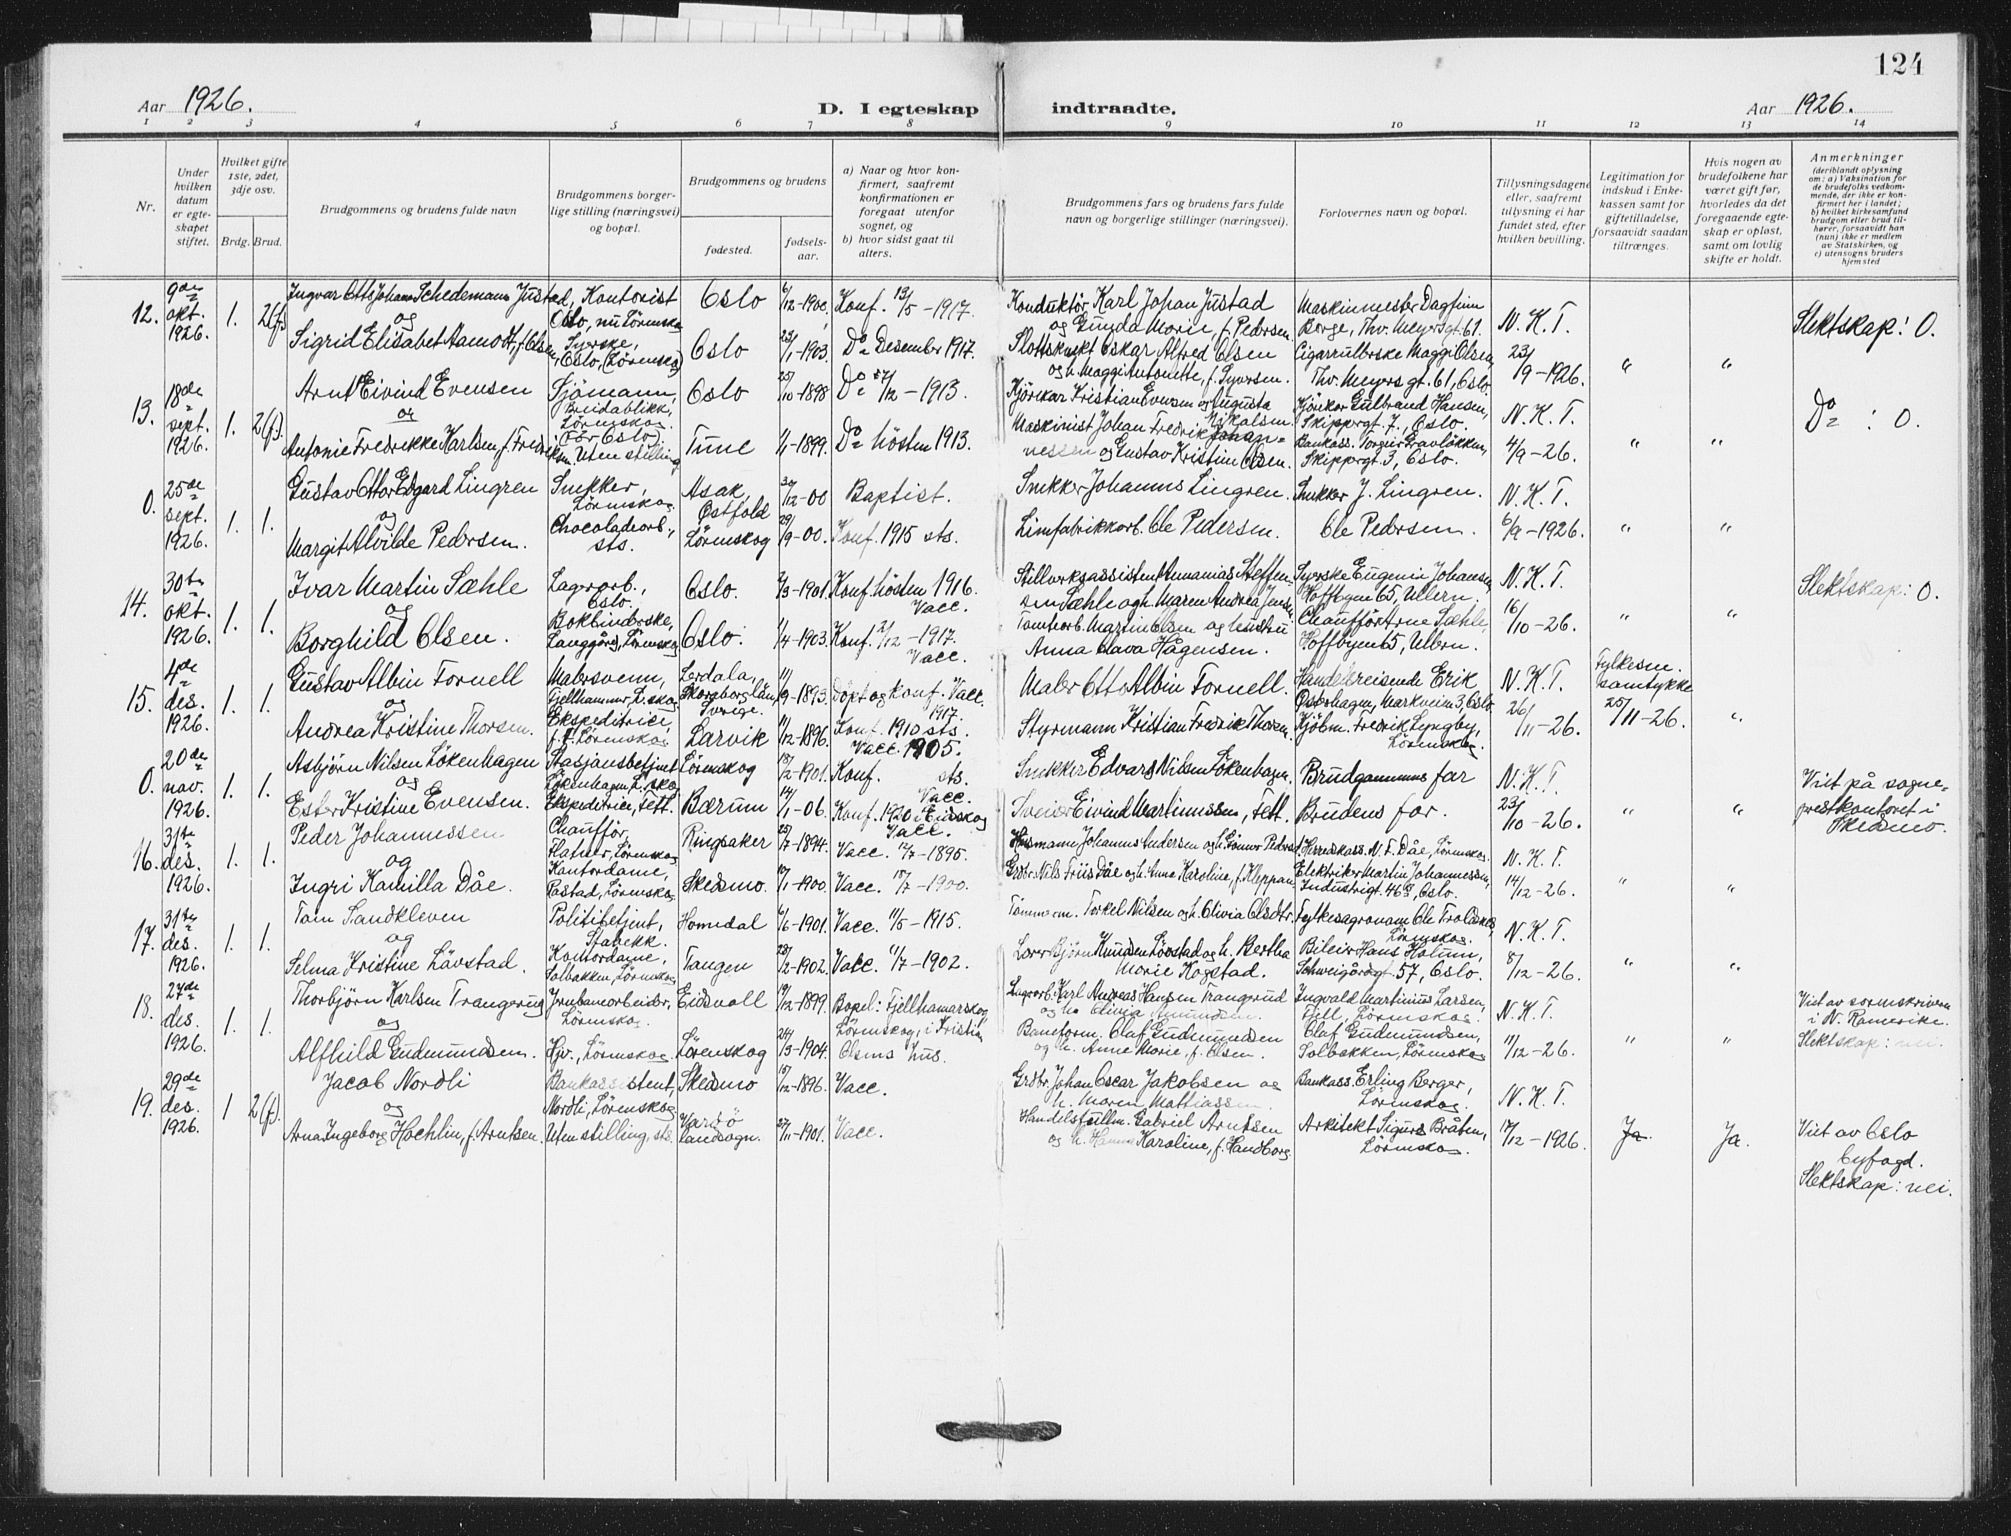 124
Aar 1926.
D. I egteskap indtraadte.
Aar 1926.
1 2 3 4 5 6 7 8 9 10 11 12 13 14
Nr.
Under hvilken datum er egteskapet stiftet.
Hvilket gifte 1ste, 2det, 3dje osv.
Brdg. Brud.
Brudgommens og brudens fulde navn
Brudgommens borgerlige stilling (næringsvei) og bopæl.
Brudgommens og brudens
fødested.
fødselsaar.
a) Naar og hvor konfirmert, saafremt konfirmationen er foregaat utenfor sognet, og
b) hvor sidst gaat til alters.
Brudgommens fars og brudens fars fulde navn og borgerlige stillinger (næringsvei).
Forlovernes navn og bopæl.
Tillysningsdagene eller, saafremt tillysning ei har fundet sted, efter hvilken bevilling.
Legitimation for indskud i Enkekassen samt for giftetilladelse, forsaavidt saadan tiltrænges.
Hvis nogen av brudefolkene har været gift før, hvorledes da det foregaaende egteskap er opløst, samt om lovlig skifte er holdt.
Anmerkninger (deriblandt oplysning om: a) Vaksination for de brudefolks vedkommende, der ikke er konfirmert her i landet; b) hvilket kirkesamfund brudgom eller brud tilhører, forsaavidt han (hun) ikke er medlem av Statskirken, og c) utensogns bruders hjemsted
12. 9de okt. 1926. 1. 2(f).
Ingvar Otto Johans Schedemans Justad, Kontorist Oslo, nu Lörenskog Oslo 6/12-1900, Konf. 13/5-1917.
og
Sigrid Elisabet Aamodt, f. Olsen, Syerske, Oslo, (Lörenskog) Oslo 23/1-1903. Do Desember 1917.
Konduktör Karl Johan Justad og Gunda Marie, f. Pedersen
Maskinmester Dagfinn Berge, Thv. Meyersgt. 61. N. K. T.
Slottsknekt Oskar Alfred Olsen og h. Maggi Antonette, f. Syversen.
Cigarrullerske Maggi Olsen, Thv. Meyers gt. 61, Oslo. 23/9-1926. " "
Slektskap: 0.
13. 18de sept. 1926. 1. 2(f).
Arnt Eivind Evensen Sjömann, Breidablikk, Lörenskog (för Oslo) Oslo 25/10-1898 Do 5/12-1913.
og
Antonie Fredrikke Karlsen, f. Fredriksen. Uten stilling Tune 1/1-1899. Do hösten 1913.
Kjörekar Kristian Evensen og Augusta Nikalsen
Kjörekar Gulbrand Hansen, Skippergt. 7, Oslo. N. K. T.
Maskinist Johan Fredrik Johannessen og Gustav Kristine Olsen.
Bankass. Torgeir Gravlökken, Skippergt. 3, Oslo. 4/9-26. " "
Do : 0.
0. 25de sept. 1926. 1. 1.
Gustav Ottar Edgard Lingren Snekker, Lörenskog. Asak, Östfold 24/12-00 Baptist.
og
Margit Alvilde Pedersen. Chocoladearb., sts. Lörenskog 29/9-00. Konf. 1915 sts.
Snekker Johannes Lingren. Snekker J. Lingren. N. K. T.
Limfabrikkarb. Ole Pedersen. Ole Pedersen. 6/9-1926. " "
14. 30te okt. 1926. 1. 1.
Ivar Martin Sæhle Lagerarb., Oslo. Oslo. 2/3-1901. Konf. hösten 1916. Vacc.
og
Borghild Olsen. Bokbinderske, Langgård, Lörenskog Oslo. 1/4-1903. Konf. 2/12-1917. Vacc.
Stillverksassistent Annanias Steffensen Sæhle og h. Maren Andrea Jensen
Syerske Eugenie Johansen, Hoffbyen 65, Ullern. N. K. T.
Tomtearb. Martin Olsen og hustru Anna Hava Hågensen.
Chaufför Arne Sæhle, Hoffbyen 65, Ullern. 16/10-26. " "
Slektskap: 0.
15. 4de des. 1926. 1. 1.
Gustav Albin Fornell Malersvenn, Fjellhammer, L.skog Lerdala, Skaraborglän, Sverige. 11/9-1893. Döpt og konf. Vacc. 1917.
og
Andrea Kristine Thorsen. Ekspeditrice, f.t. Lörenskog. Larvik 11/12-1896. Konf. 1910 sts. Vacc. 1905.
Maler Otto Albin Fornell. Handelsreisende Erik Österhagen, Markveien 3, Oslo N. K. T.
Styrmann Kristian Fredrik Thorsen. Kjöbm. Fredrik Lyngby, Lörenskog. 26/11-26. Fylkesm. samtykke 25/11-26. "
0. 20de nov. 1926. 1. 1.
Asbjörn Nilsen Lökenhagen Stasjonsbetjent, Lökenhagen, L.skog Lörenskog 18/2-1901. Konf. sts. Vacc.
og
Ester Kristine Evensen. Ekspeditrice, Fett. Bærum 14/1-06. Konf. 1920 i Eidskog Vacc.
Snekker Edvard Nilsen Lökenhagen. Brudgommens far N. K. T.
Sveiser Eivind Martinussen, Fett. Brudens far. 23/10-26. " "
Viet på sogneprestkontoret i Skedsmo.
16. 31te des. 1926. 1. 1.
Peder Johannessen Chaufför, Flatner, Lörenskog Ringsaker 25/7-1894. Vacc. 12/7-1895.
og
Ingri Kamilla Dåe. Kontordame, Rastad, Lörenskog. Skedsmo. 10/1-1900. Vacc. 18/7-1900.
Husmann Johannes Andersen og h. Gunnor Pedersd. Herredskass. N. F. Dåe, Lörenskog N. K. T.
Grdbr. Nils Friis Dåe og h. Anne Karoline, f. Kleppan. Elektriker Martin Johannessen, Industrigt. 46, Oslo. 14/12-26. " "
17. 31te des. 1926. 1. 1.
Tom Sandkleven Politibetjent, Stabekk. Homedal 6/6-1901. Vacc. 11/5-1915.
og
Selma Kristine Lövstad. Kontordame, Solbakken, Lörenskog Tangen 28/2-1902. Vacc. 11/7-1902.
Tömmerm. Torkel Nilsen og h. Olivia Olsdtr. Fylkesagronom Ole Troldskog, Lörenskog. N. K. T.
Lærer Björn Knudsen Lövstad og h. Bertha Marie Kogstad. Bileier Hans Holum, Schweigårdsgt. 57, Oslo. 8/12-26. " "
18. 27de des. 1926. 1. 1.
Thorbjörn Karlsen Trangerud Jernbanearbeider, Lörenskog. Eidsvoll 19/12-1899. Bopel: Fjellhamarskog Lörenskog, i Kristian Olsens hus.
og
Alfhild Gudmundsen. Hjv., Lörenskog. Lörenskog 24/3-1904.
Lagerarb. Karl Andreas Hansen Trangerud og h. Olivia Amundsen. Ingvald Martinius Larsen, Fjell, Lörenskog. N. K. T.
Baneform. Olaf Gudmundsen og h. Anne Marie, f. Olsen. Olaf Gudmundsen, Solbakken, Lörenskog 11/12-26. " "
Viet av sorenskriveren i N. Romerike.
Slektskap: nei.
19. 29de des. 1926. 1 2(f).
Jacob Nordli Bankassistent, Nordli, Lörenskog Skedsmo 15/12-1896. Vacc.
og
Arna Ingeborg Hoehlin, f. Arntsen. Uten stilling, sts. Vardö landsogn. 27/11-1901. Vacc.
Grdbr. Johan Oscar Jakobsen og h. Maren Mattiassen. Bankass. Erling Berger, Lörenskog. N. K. T.
Handelsfullm. Gabriel Arntsen og h. Hanna Karoline, f. Handborg. Arkitekt Sigurd Bråten, Lörenskog. 17/12-1926. Ja. Ja.
Viet av Oslo byfogd.
Slektskap: nei.